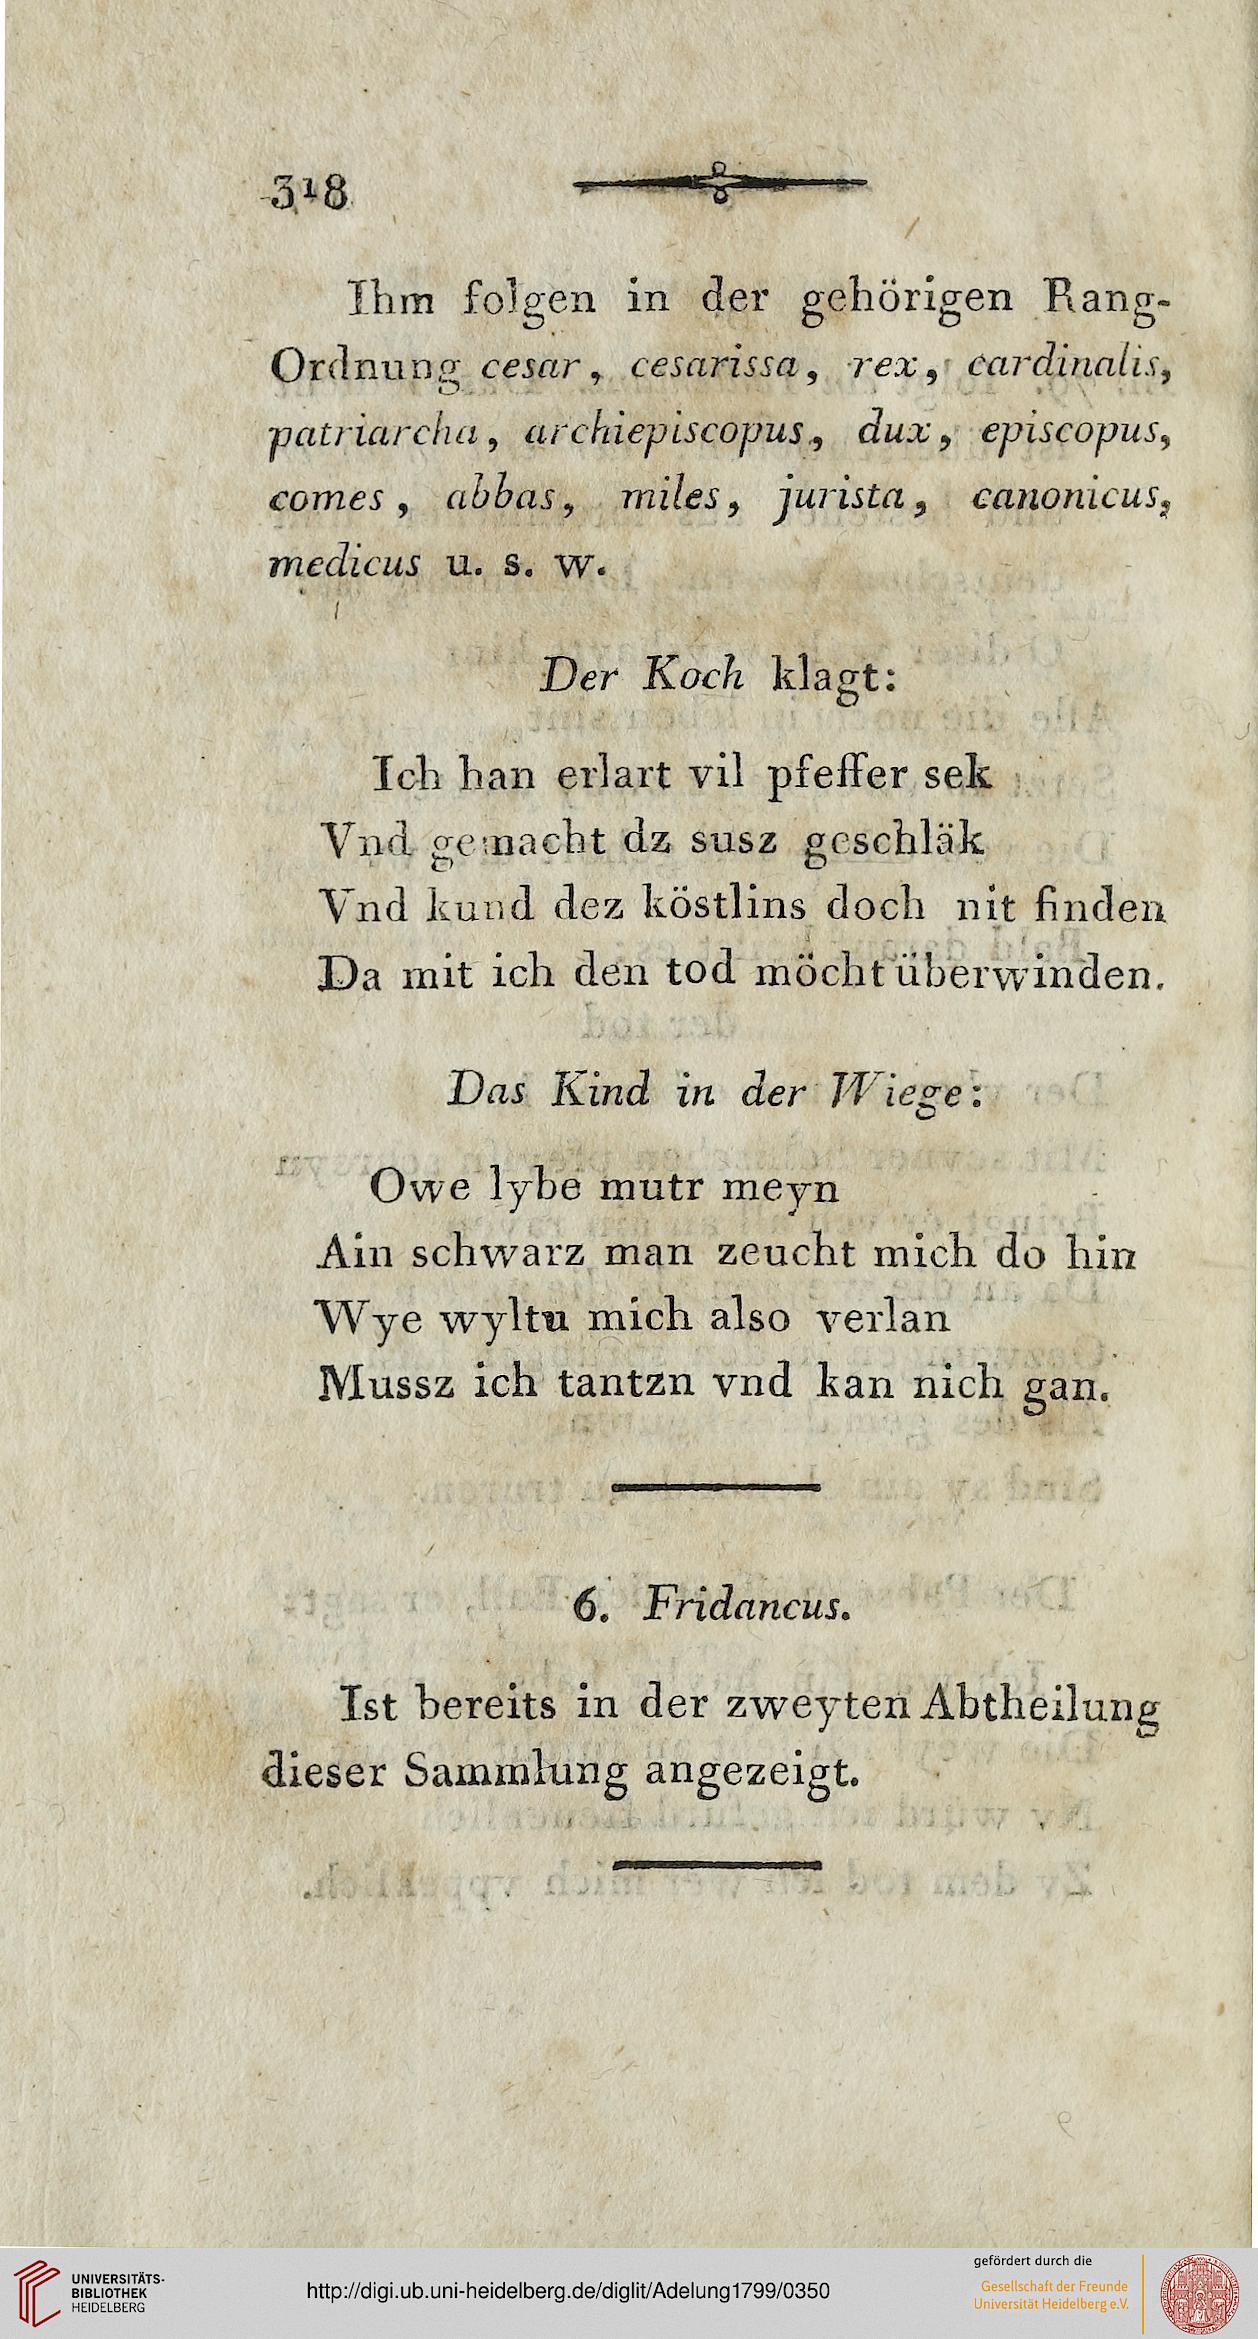 318
Ihm folgen in der gehörigen Rang-
Ordnung cesar, cesarissa, rex, cardinalis,
patriarcha, archiepiscopus, dux, episcopus,
comes, abbas, miles, jurista, canonicus,
medicus u. s. w.
Der Koch klagt:
Ich han erlart vil pfeffer sek
Vnd gemacht dz susz geschläk
Vnd kund dez köstlins doch nit finden
Da mit ich den tod möcht überwinden.
Das Kind in der Wiege:
Owe lybe mutr meyn
Ain schwarz man zeucht mich do hin
Wye wyltu mich also verlan
Mussz ich tantzn vnd kan nich gan.
6. Fridancus.
Ist bereits in der zweyten Abtheilung
dieser Sammlung angezeigt.
UNIVERSITÄTS-
BIBLIOTHEK
HEIDELBERG
http://digi.ub.uni-heidelberg.de/diglit/Adelung1799/0350
gefördert durch die
Gesellschaft der Freunde
Universität Heidelberg e.V.